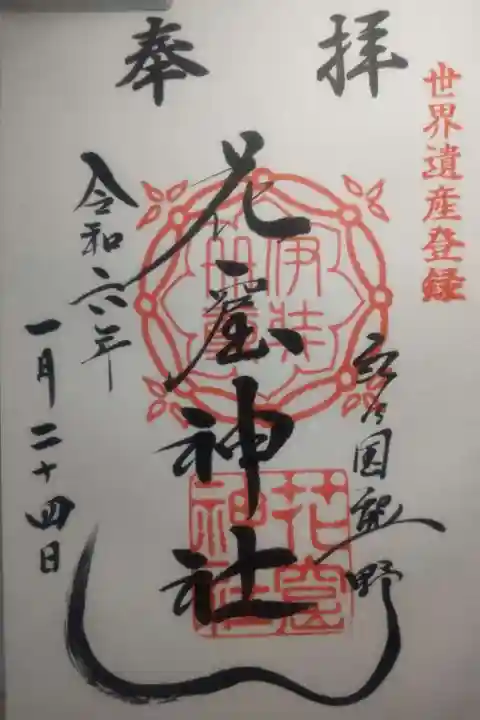 奉拝
世界遺産登録
国熊野
花窟神社
令和六年
一月二十四日
伊弉冊尊
花窟神社